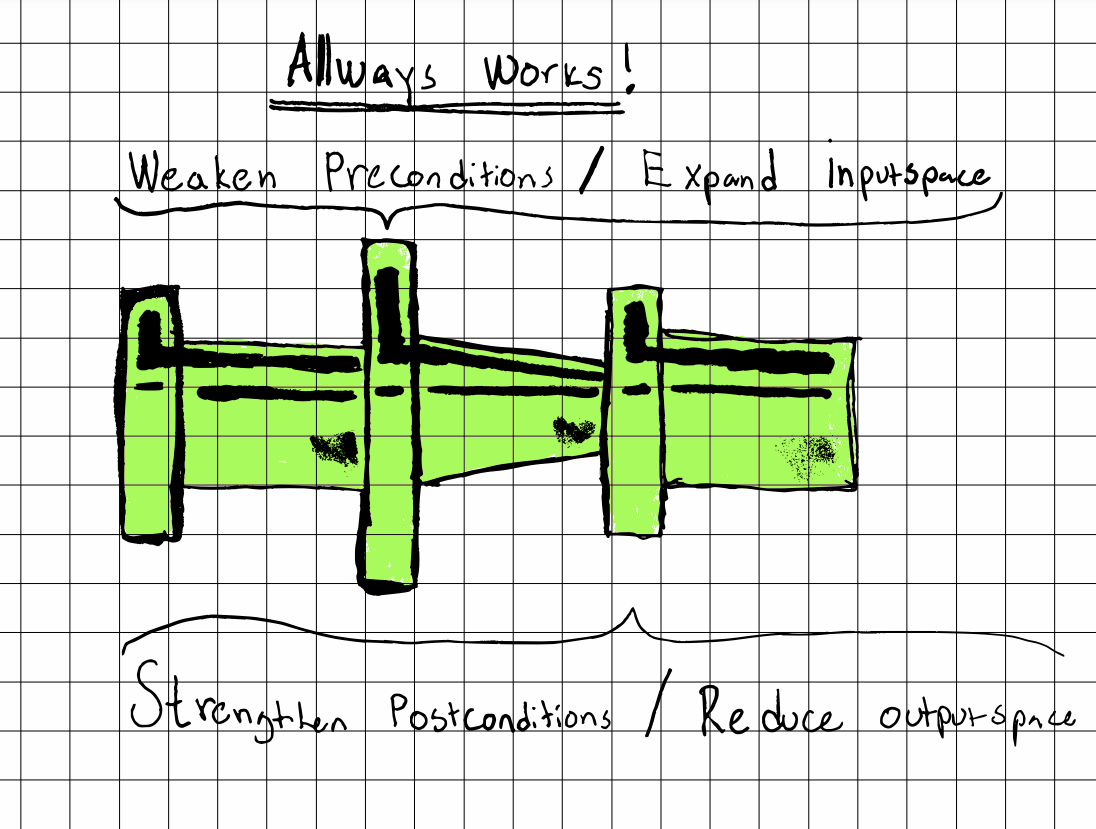 Allways Works!
Weaken Preconditions / Expand inputspace
Strengthen Postconditions / Reduce outputspace